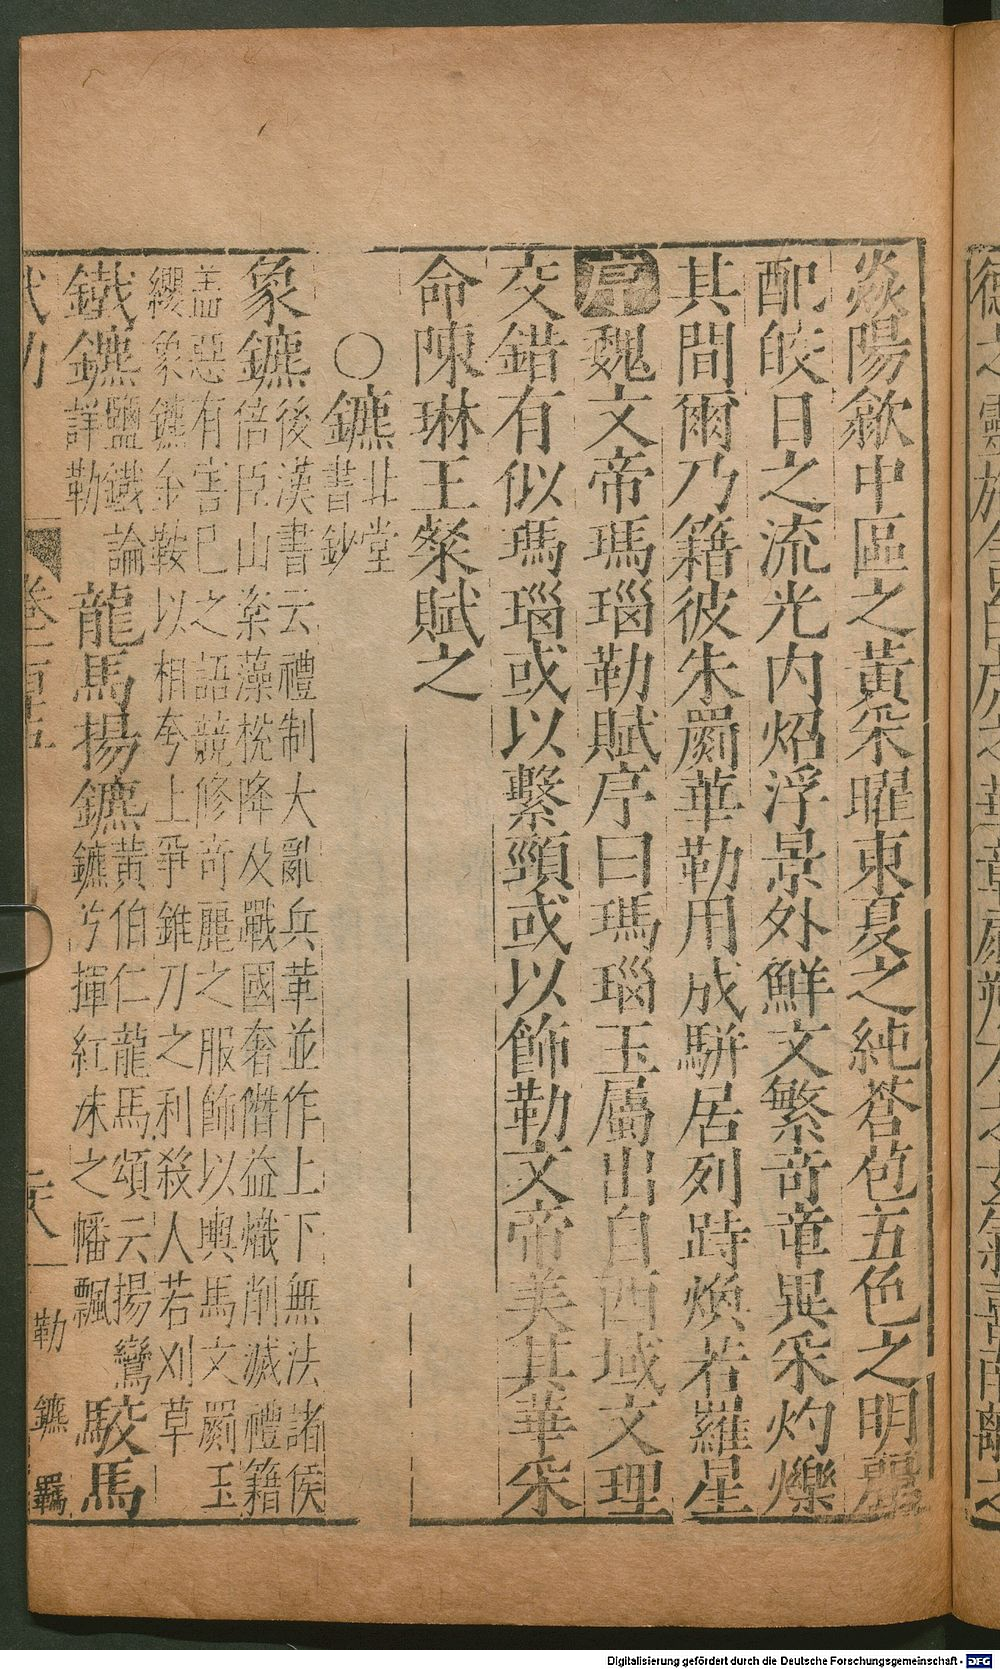 焱陽歙中區之黃采曜東夏之純蒼苞五色之明麗
配皎日之流光内炤浮景外鮮文繁竒章異采灼爍
其間爾乃籍彼朱罽華勒用成駢居列跱煥若羅星
序魏文帝瑪瑙勒賦序曰瑪瑙玉屬出自西域文理
交錯有似瑪瑙或以繫頸或以飾勒文帝美其華采
命陳琳王粲賦之
○鑣北堂書鈔
象鑣後漢書云禮制大亂兵革並作上下無法諸侯
倍臣山楶藻梲降及戰國奢僭益熾削滅禮籍
盖惡有害已之語競修竒麗之服飾以輿馬文罽玉
纓象鑣金鞍以相夸上爭錐刀之利殺人若刈草
鐵鑣鹽鐵論詳勒 龍馬揚鑣黃伯仁龍馬頌云揚鸞鑣兮揮紅沬之幡飄 駮馬
勒 鑣 羈
Digitalisierung gefördert durch die Deutsche Forschungsgemeinschaft - DFG